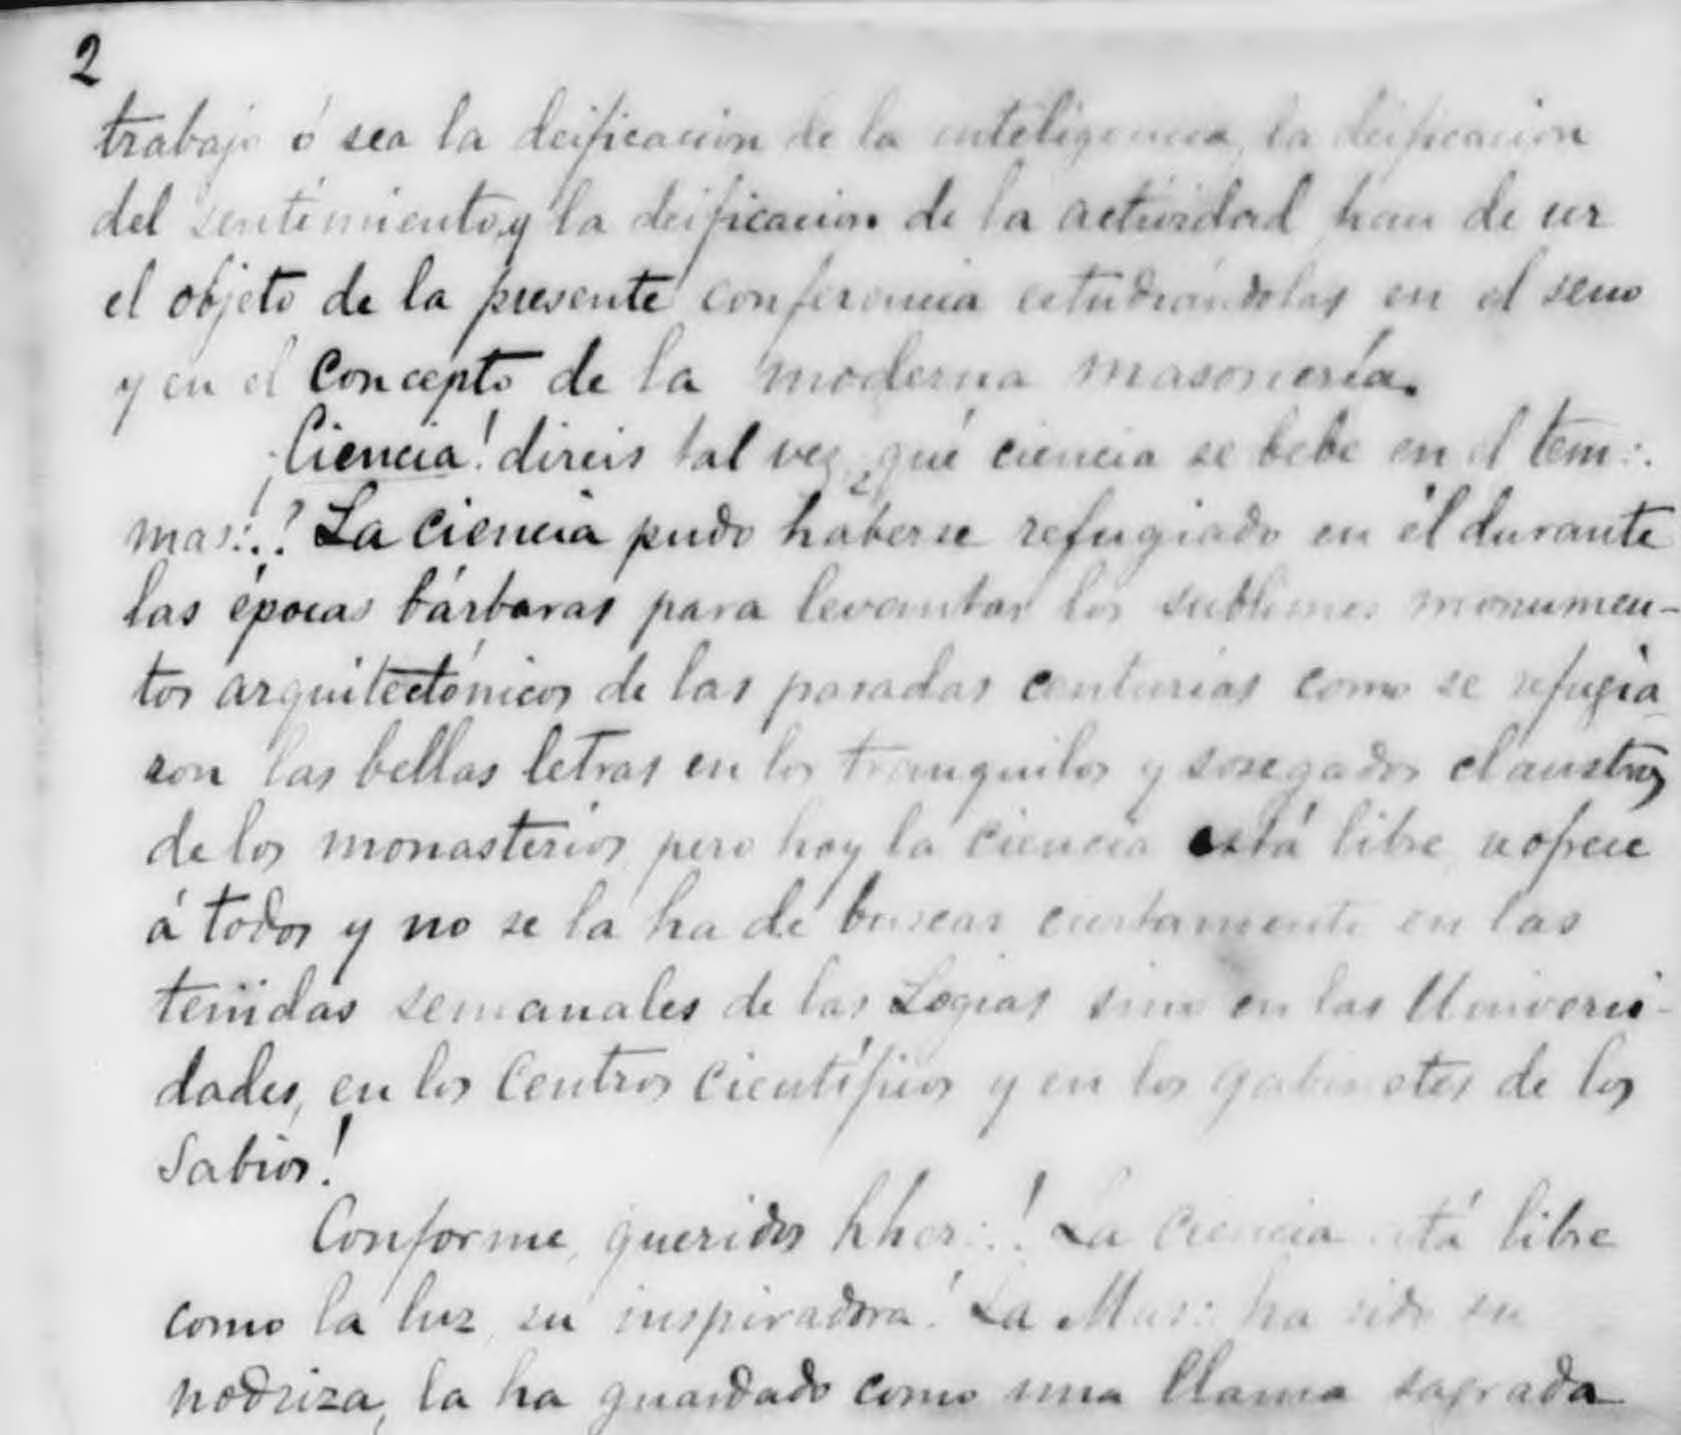 2
trabajo ó sea la deificacion de la inteligencia, la deificacion
del sentimiento y la deificacion de la actividad han de ser
el objeto de la presente conferencia estudiándolas en el seno
y en el concepto de la moderna masonería.
¡Ciencia! direis tal vez ¿qué ciencia se bebe en el tem∴
mas∴? La ciencia pudo haberse refugiado en él durante
las épocas bárbaras para levantar los sublimes monumen-
tos arquitectónicos de las pasadas centurias como se refugia
ron las bellas letras en los tranquilos y sosegados claustros
de los monasterios, pero hoy la ciencia está libre, se ofrece
á todos y no se la ha de buscar ciertamente en las
tenidas semanales de las Logias sino en las Universi-
dades, en los Centros científicos y en los gabinetes de los
Sabios!
Conforme, queridos hher∴! La ciencia está libre
como la luz, su inspiradora! La Mas∴ ha sido su
nodriza, la ha guardado como una llama sagrada